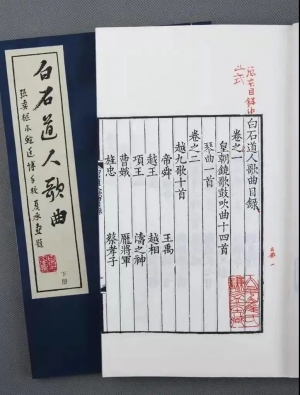 白石道人歌曲
張奕樞本鮑廷博手校 夏承燾題
下冊
白石道人歌曲目錄
卷之一
皇朝鐃歌鼓吹曲十四首
琴曲一首
卷之二
越九歌十首
帝舜 王禹
越王 越相
項王 濤之神
曹娥 龐將軍
旌忠 蔡孝子